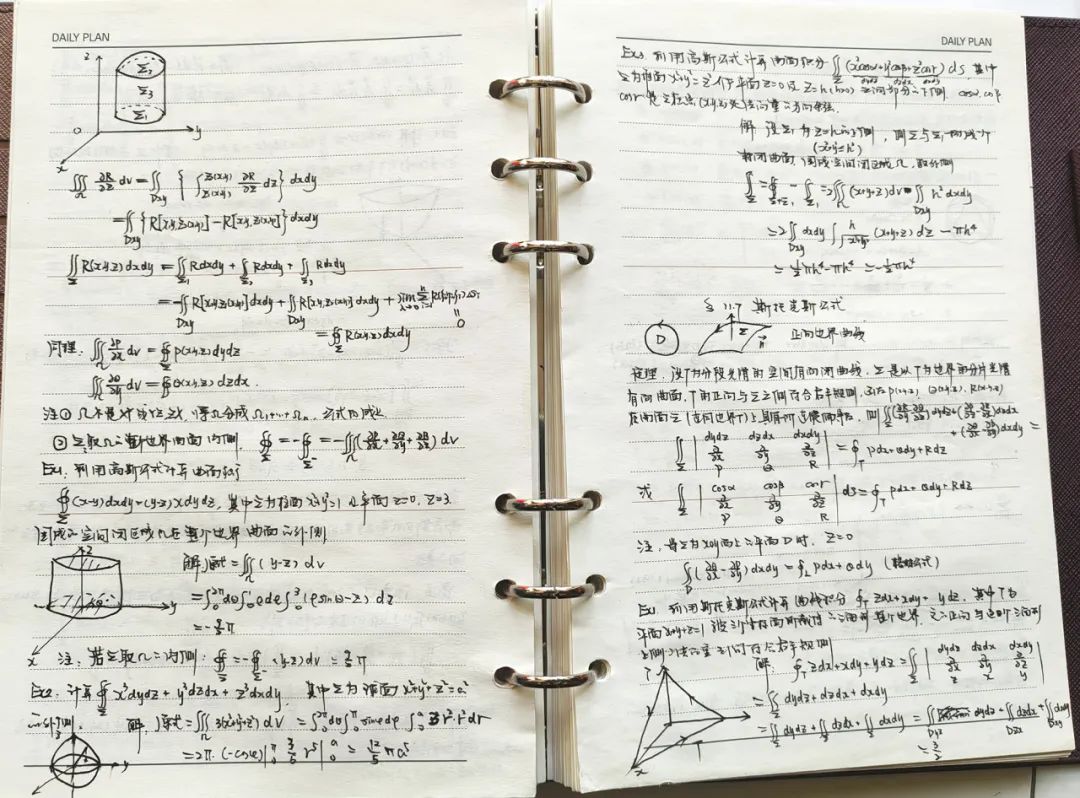 DAILY PLAN
z
Σ₂
Σ₃
Σ₁
0
y
x
∭_Ω ∂R/∂z dv = ∬_Dxy { ∫_{z₁(x,y)}^{z₂(x,y)} ∂R/∂z dz } dxdy
= ∬_Dxy { R[x,y,z₂(x,y)] - R[x,y,z₁(x,y)] } dxdy
∬_Σ R(x,y,z) dxdy = ∬_Σ₁ Rdxdy + ∬_Σ₂ Rdxdy + ∬_Σ₃ Rdxdy
= -∬_Dxy R[x,y,z₁(x,y)] dxdy + ∬_Dxy R[x,y,z₂(x,y)] dxdy + lim_{λ→0} Σ_{i=1}^n
0
= ∯_Σ R(x,y,z) dxdy
同理. ∭_Ω ∂P/∂x dv = ∯_Σ P(x,y,z) dydz
∭_Ω ∂Q/∂y dv = ∯_Σ Q(x,y,z) dzdx.
注① Ω不是 将Ω分成 Ω₁+…+Ωₙ 公式仍成立
② Σ取Ω 整个边界曲面内侧. ∯_Σ = -∯_Σ⁻ = -∭_Ω (∂P/∂x + ∂Q/∂y + ∂R/∂z) dv
Ex1. 利用高斯公式计算曲面积分
∯_Σ (x-y)dxdy + (y-z)xdydz, 其中Σ为柱面 x²+y²=1 及平面 z=0, z=3
围成的空间闭区域Ω的整个边界曲面的外侧
z
y
x
解: 原式 = ∭_Ω (y-z) dv
= ∫₀^2π dθ ∫₀^1 ρdρ ∫₀^3 (ρsinθ-z) dz
= -9/2 π
注. 若Σ取Ω的内侧: ∯_Σ = -∯ (y-z) dv = 9/2 π
Ex2. 计算 ∯_Σ x³dydz + y³dzdx + z³dxdy 其中Σ为球面 x²+y²+z²=a²
的外侧. 解. 原式 = ∭_Ω 3(x²+y²+z²) dv = ∫₀^2π dθ ∫₀^π sinφdφ ∫₀^a 3r²·r²dr
= 2π·(-cosφ)|₀^π 3/5 r⁵|₀^a = 12/5 πa⁵
y
DAILY PLAN
Ex3. 利用高斯公式计算曲面积分 ∬_Σ (x²cosα+y²cosβ+z²cosγ) ds 其中
dydz dzdx dxdy
Σ为锥面 x²+y²=z² 介于平面 z=0 及 z=h (h>0) 之间部分的下侧. cosα, cosβ
cosγ是Σ在点(x,y,z)处法向量的方向余弦.
解 设Σ₁为z=h的上侧, 则Σ与Σ₁构成个
(x²+y²≤h²)
封闭曲面, 围成空间闭区域Ω, 取外侧
∬_Σ = ∯_{Σ+Σ₁} - ∬_Σ₁ = 2∭_Ω (x+y+z) dv - ∬_Dxy h² dxdy
= 2∬_Dxy dxdy ∫_{√x²+y²}^h (x+y+z) dz - πh⁴
= ½πh⁴ - πh⁴ = -½πh⁴
§ 11.7 斯托克斯公式
D
Σ
n
正向边界曲线
定理. 设Γ为分段光滑的空间有向闭曲线, Σ是以Γ为边界的分片光滑
有向曲面, Γ的正向与Σ之侧符合右手规则, 函数P(x,y,z), Q(x,y,z), R(x,y,z)
在曲面Σ(连同边界Γ)上具有一阶连续偏导数, 则 ∬_Σ (∂R/∂y - ∂Q/∂z) dydz + (∂P/∂z - ∂R/∂x) dzdx
+ (∂Q/∂x - ∂P/∂y) dxdy =
∬_Σ | dydz dzdx dxdy
∂/∂x ∂/∂y ∂/∂z
P Q R | = ∮_Γ Pdx+Qdy+Rdz
或 ∬_Σ | cosα cosβ cosγ
∂/∂x ∂/∂y ∂/∂z
P Q R | ds = ∮_Γ Pdx+Qdy+Rdz
注, 当Σ为xoy面上的平面D时, z=0
∬_D (∂Q/∂x - ∂P/∂y) dxdy = ∮_L Pdx+Qdy (格林公式)
Ex1. 利用斯托克斯公式计算曲线积分 ∮_Γ zdx+xdy+ydz, 其中Γ为
平面x+y+z=1被三个坐标面所截成的三角形整个边界 它的正向与这个三角形
上侧的法向量之间符合右手规则
解. ∮_Γ zdx+xdy+ydz = ∬_Σ | dydz dzdx dxdy
∂/∂x ∂/∂y ∂/∂z
z x y |
= ∬_Σ dydz+dzdx+dxdy
= ∬_Σ dydz + ∬_Σ dzdx + ∬_Σ dxdy = ∬_Dyz dydz + ∬_Dzx dzdx + ∬_Dxy dxdy
= 3/2
x